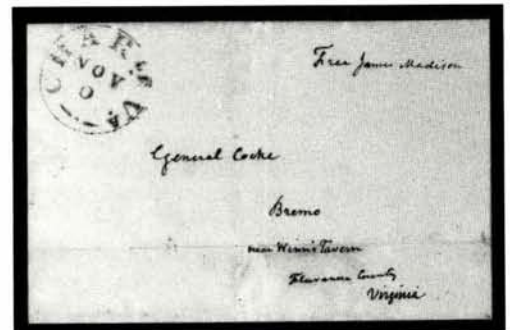 CHAR
VA
NOV
Free James Madison
General Cocke
Bremo
near Winn's Tavern
Fluvanna County
Virginia